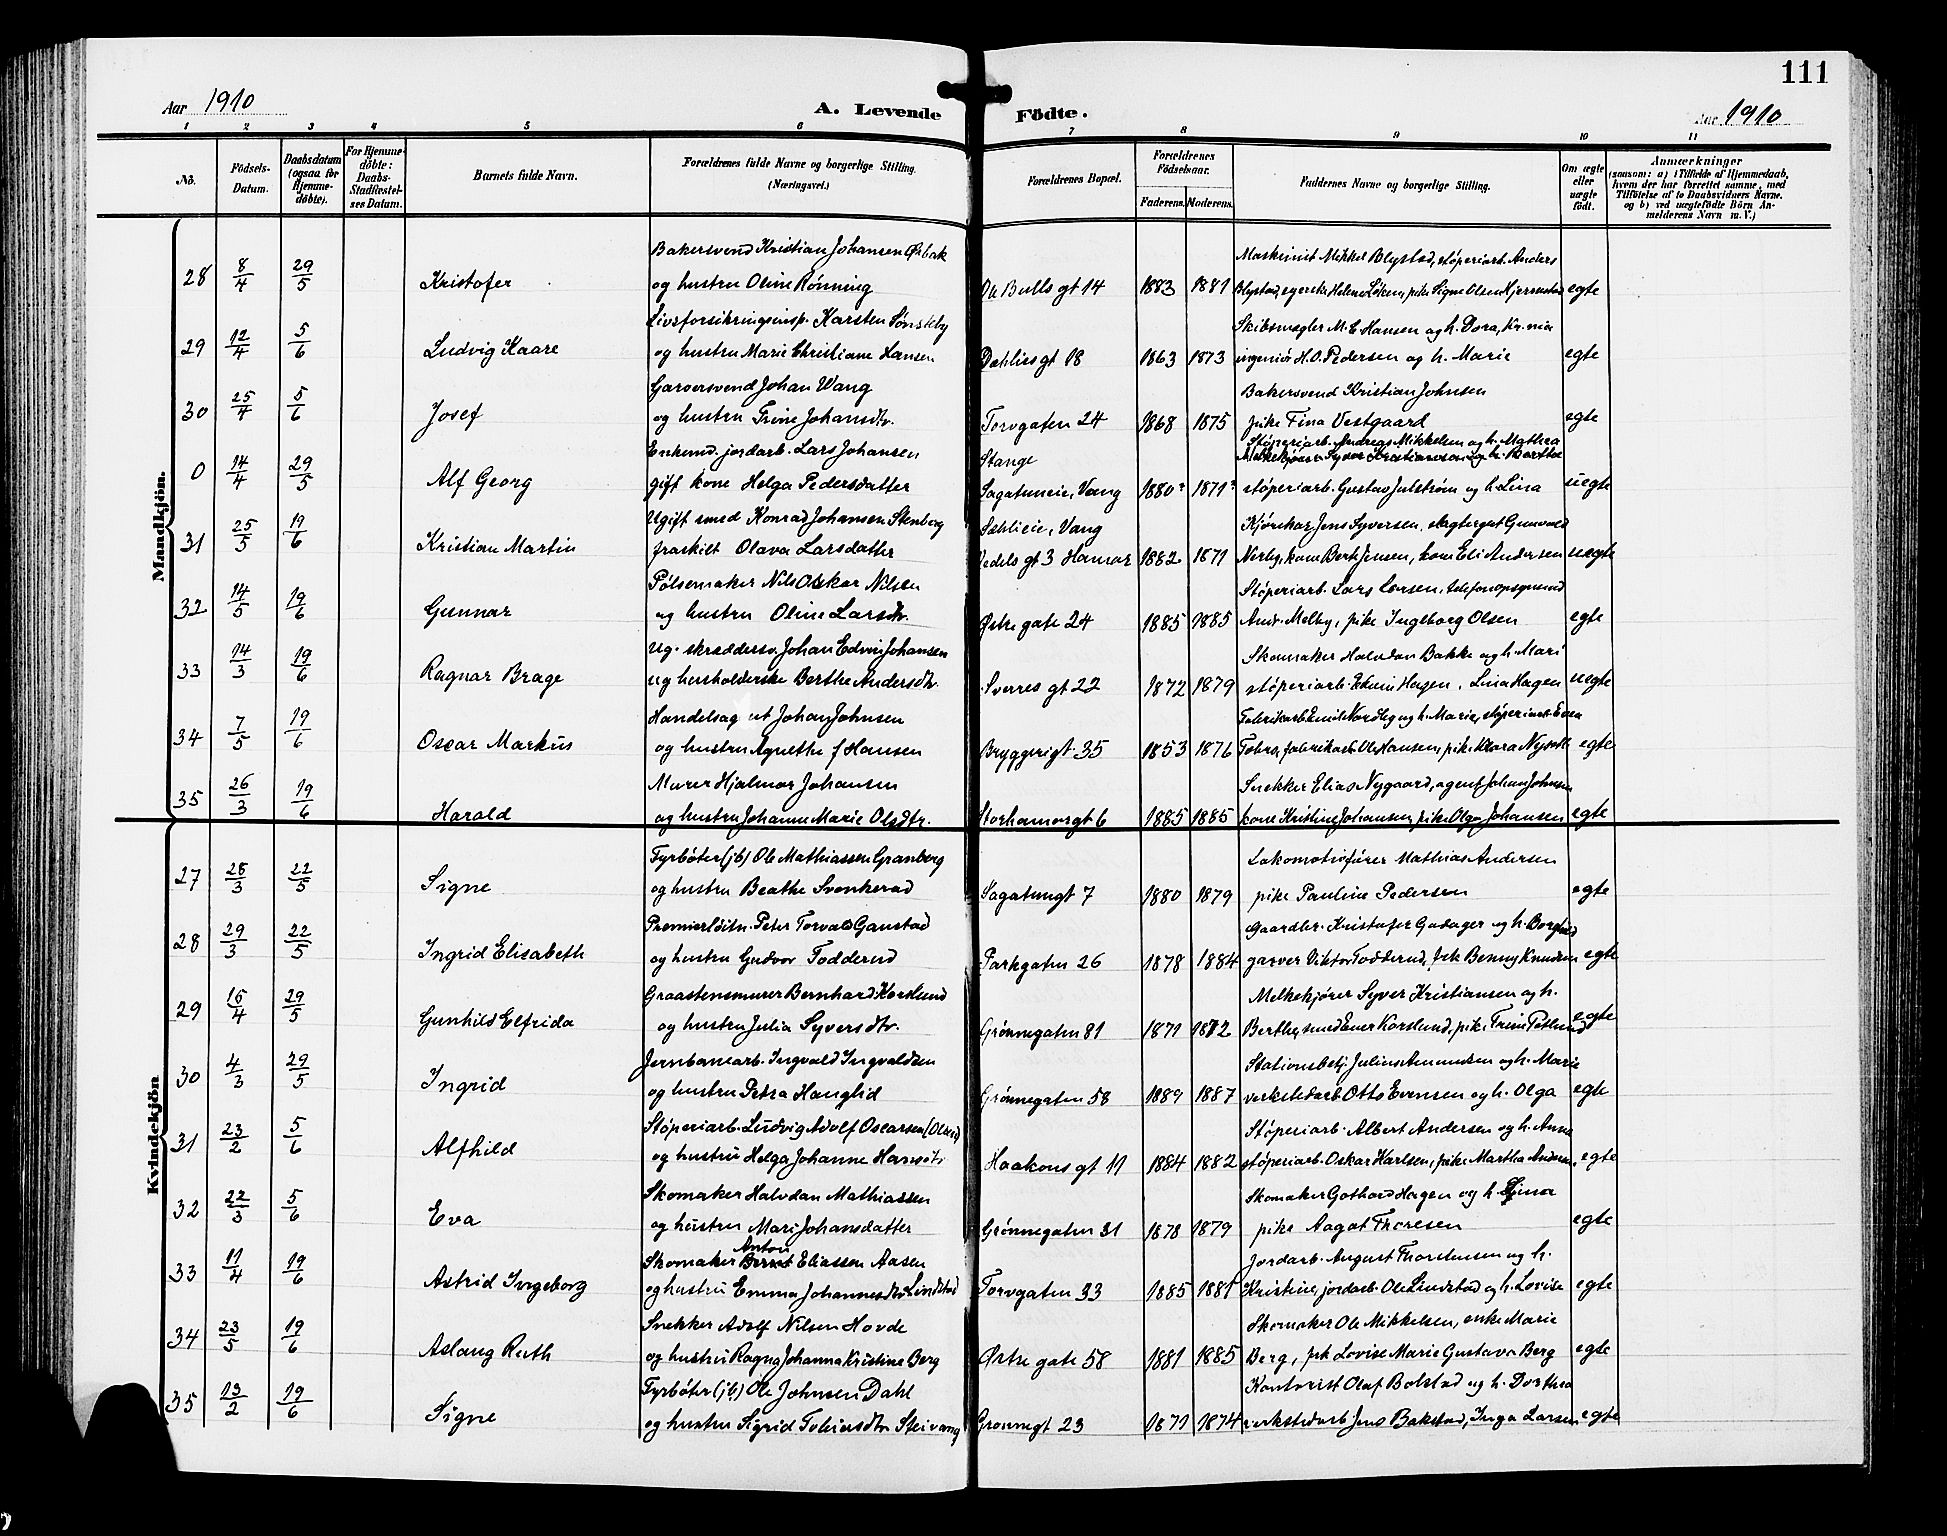 111
Aar 1910 A. Levende Födte. Aar 1910
1 2 3 4 5 6 7 8 9 10 11
No. Födsels-Datum. Daabsdatum (ogsaa for Hjemme-döbte). For Hjemme-döbte: Daabs-Stadfæstel-ses Datum. Barnets fulde Navn. Forældrenes fulde Navne og borgerlige Stilling. (Næringsvei.) Forældrenes Bopæl. Forældrenes Födselsaar. Faderens. Moderens. Faddernes Navne og borgerlige Stilling. Om ægte eller uægte født. Anmærkninger (saasom: a) i Tilfælde af Hjemmedaab, hvem der har forrettet samme, med Tilføielse af to Daabsvidners Navne. og b) ved uægtefödte Börn An-melderens Navn m. V.)
Mandkjön.
Bakersvend Kristian Johansen Ørbak Maskinist Mikkel Blystad, støperiarb. Anders
28 8/4 29/5 Kristofer og hustru Oline Rønning Ole Bulls gt 14 1883 1881 Blystad, syerske Helene Løken, pike Signe Olsen egte
Livsforsikringsinsp. Karsten Sønsteby Skibsmægler M. E. Hansen og h. Dora, Kr.nia
29 12/4 5/6 Ludvig Kaare og hustru Marie Christiane Hansen Dahlies gt 18 1863 1873 ingeniør H. O. Pedersen og h. Marie egte
Garversvend Johan Wang Bakersvend Kristian Johnsen
30 25/4 5/6 Josef og hustru Trine Johansdtr. Torvgaten 24 1868 1875 pike Fina Vestgaard egte
Støperiarb. Andreas Mikkelsen og h. Mathea
Enkemd. jordarb. Lars Johansen Stange Melkekjører Syver Kristiansen og h. Berthe
0 14/4 29/5 Alf Georg gift kone Helga Pedersdatter Sagatuneie, Vang 1880? 1871? støperiarb. Gustav Julstrøm og h. Lina uegte
Ugift smed Konrad Johansen Stenberg Dahlieie, Vang Kjørekar Jens Syversen, slagtergut Gunvald
31 25/5 19/6 Kristian Martin fraskilt Olava Larsdatter Vedels gt 3 Hamar 1882 1871 Nerby, kone Berte Jensen, kone Eli Andersen uegte
Pølsemaker Nils Oskar Nilsen Støperiarb. Lars Larsen, telefonopsynsmd
32 14/5 19/6 Gunnar og hustru Oline Larsdtr. Østre gate 24 1885 1885 Andr. Melby, pike Ingeborg Olsen egte
Ug. skræddersv. Johan Edvin Johansen Skomaker Halvdan Bakke og h. Mari
33 14/3 19/6 Ragnar Brage ug husholderske Berthe Andersdtr. Sverres gt 22 1872 1879 støperiarb. Edvin Hagen, Lina Hagen uegte
Handelsagent Johan Johnsen Fabrikarb. Emil Nordby og h. Marie, støperiarb. Even
34 7/5 19/6 Oscar Markus og hustru Agnethe f Hansen Bryggerigt 35 1853 1876 fabrikarb. Ole Hansen, pike Klara egte
Murer Hjalmar Johansen Snekker Elias Nygaard, agent Johan Johnsen
35 26/3 19/6 Harald og hustru Johanne Marie Olsdtr. Storhamargt 6 1885 1885 kone Kristine Johansen, pike Olga Johansen egte
Kvindekjön
Fyrbøter (jb) Ole Mathiassen Granberg Lokomotivfører Mathias Andersen
27 28/3 22/5 Signe og hustru Beathe Svenkerud Sagatungt 7 1880 1879 pike Pauline Pedersen egte
Premierløitn. Peter Torvald Ganstad Gaardbr. Kristofer Gudager og h. Borghild
28 29/3 22/5 Ingrid Elisabeth og hustru Gudvor Todderud Parkgaten 26 1878 1884 garver Viktor Todderud, frk Benny Knudsen egte
Graastensmurer Bernhard Korslund Melkekjører Syver Kristiansen og h.
29 16/4 29/5 Gunhild Elfrida og hustru Julia Syversdtr. Grønnegaten 81 1871 1872 Berthe, smed Emer Korslund, pike Trine egte
Jernbanearb. Ingvald Ingvaldsen Stationsbetj. Julius Amundsen og h. Marie
30 4/3 29/5 Ingrid og hustru Petra Hauglid Grønnegaten 58 1889 1887 verkstedarb. Otto Evensen og h. Olga egte
Støperiarb. Ludvig Adolf Oscarsen (Olsen) Støperiarb. Albert Andersen og h. Anna
31 23/2 5/6 Alfhild og hustru Helga Johanne Hansdtr Haakons gt 11 1884 1882 støperiarb. Oskar Karlsen, pike Martha Andersen, egte
Skomaker Halvdan Mathiassen Skomaker Gothard Hagen og h. Lina
32 22/3 5/6 Eva og hustru Mari Johansdatter Grønnegaten 31 1878 1879 pike Aagot Thoresen egte
Anton
Skomaker Bernt Eliassen Aasen Jordarb. August Thorstensen og h.
33 11/4 19/6 Astrid Ingeborg og hustru Emma Johannesdtr Lindstad Torvgaten 33 1885 1881 Kristine, jordarb. Ole Lindstad og h. Lovise egte
Snekker Adolf Nilsen Hovde Skomaker Ole Mikkelsen, enke Marie
34 23/5 19/6 Aslaug Ruth og hustru Ragna Johanna Kristine Berg Østre gate 58 1881 1885 Berg, frk Lovise Marie Gustava Berg egte
Fyrbøter (jb) Ole Johnsen Dahl Kontorist Olaf Bolstad og h. Dorthea
35 13/2 19/6 Signe og hustru Sigrid Tobiasdtr Steivang Grønnegt 23 1871 1874 verkstedarb Jens Bakstad, Inga Larsen egte